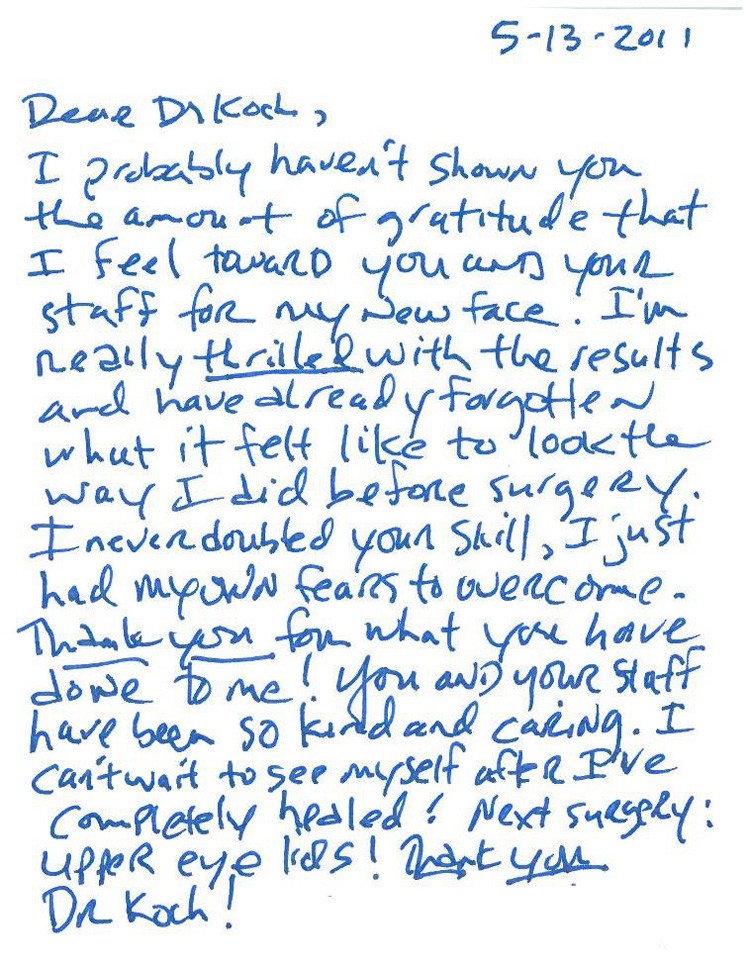 5-13-2011
Dear Dr Koch,
I probably haven't shown you
the amount of gratitude that
I feel toward you and your
staff for my new face. I'm
really thrilled with the results
and have already forgotten
what it felt like to look the
way I did before surgery.
I never doubted your skill, I just
had my own fears to overcome.
Thank you for what you have
done to me! You and your staff
have been so kind and caring. I
can't wait to see myself after I've
completely healed! Next surgery:
upper eye lids! Thank you
Dr Koch!